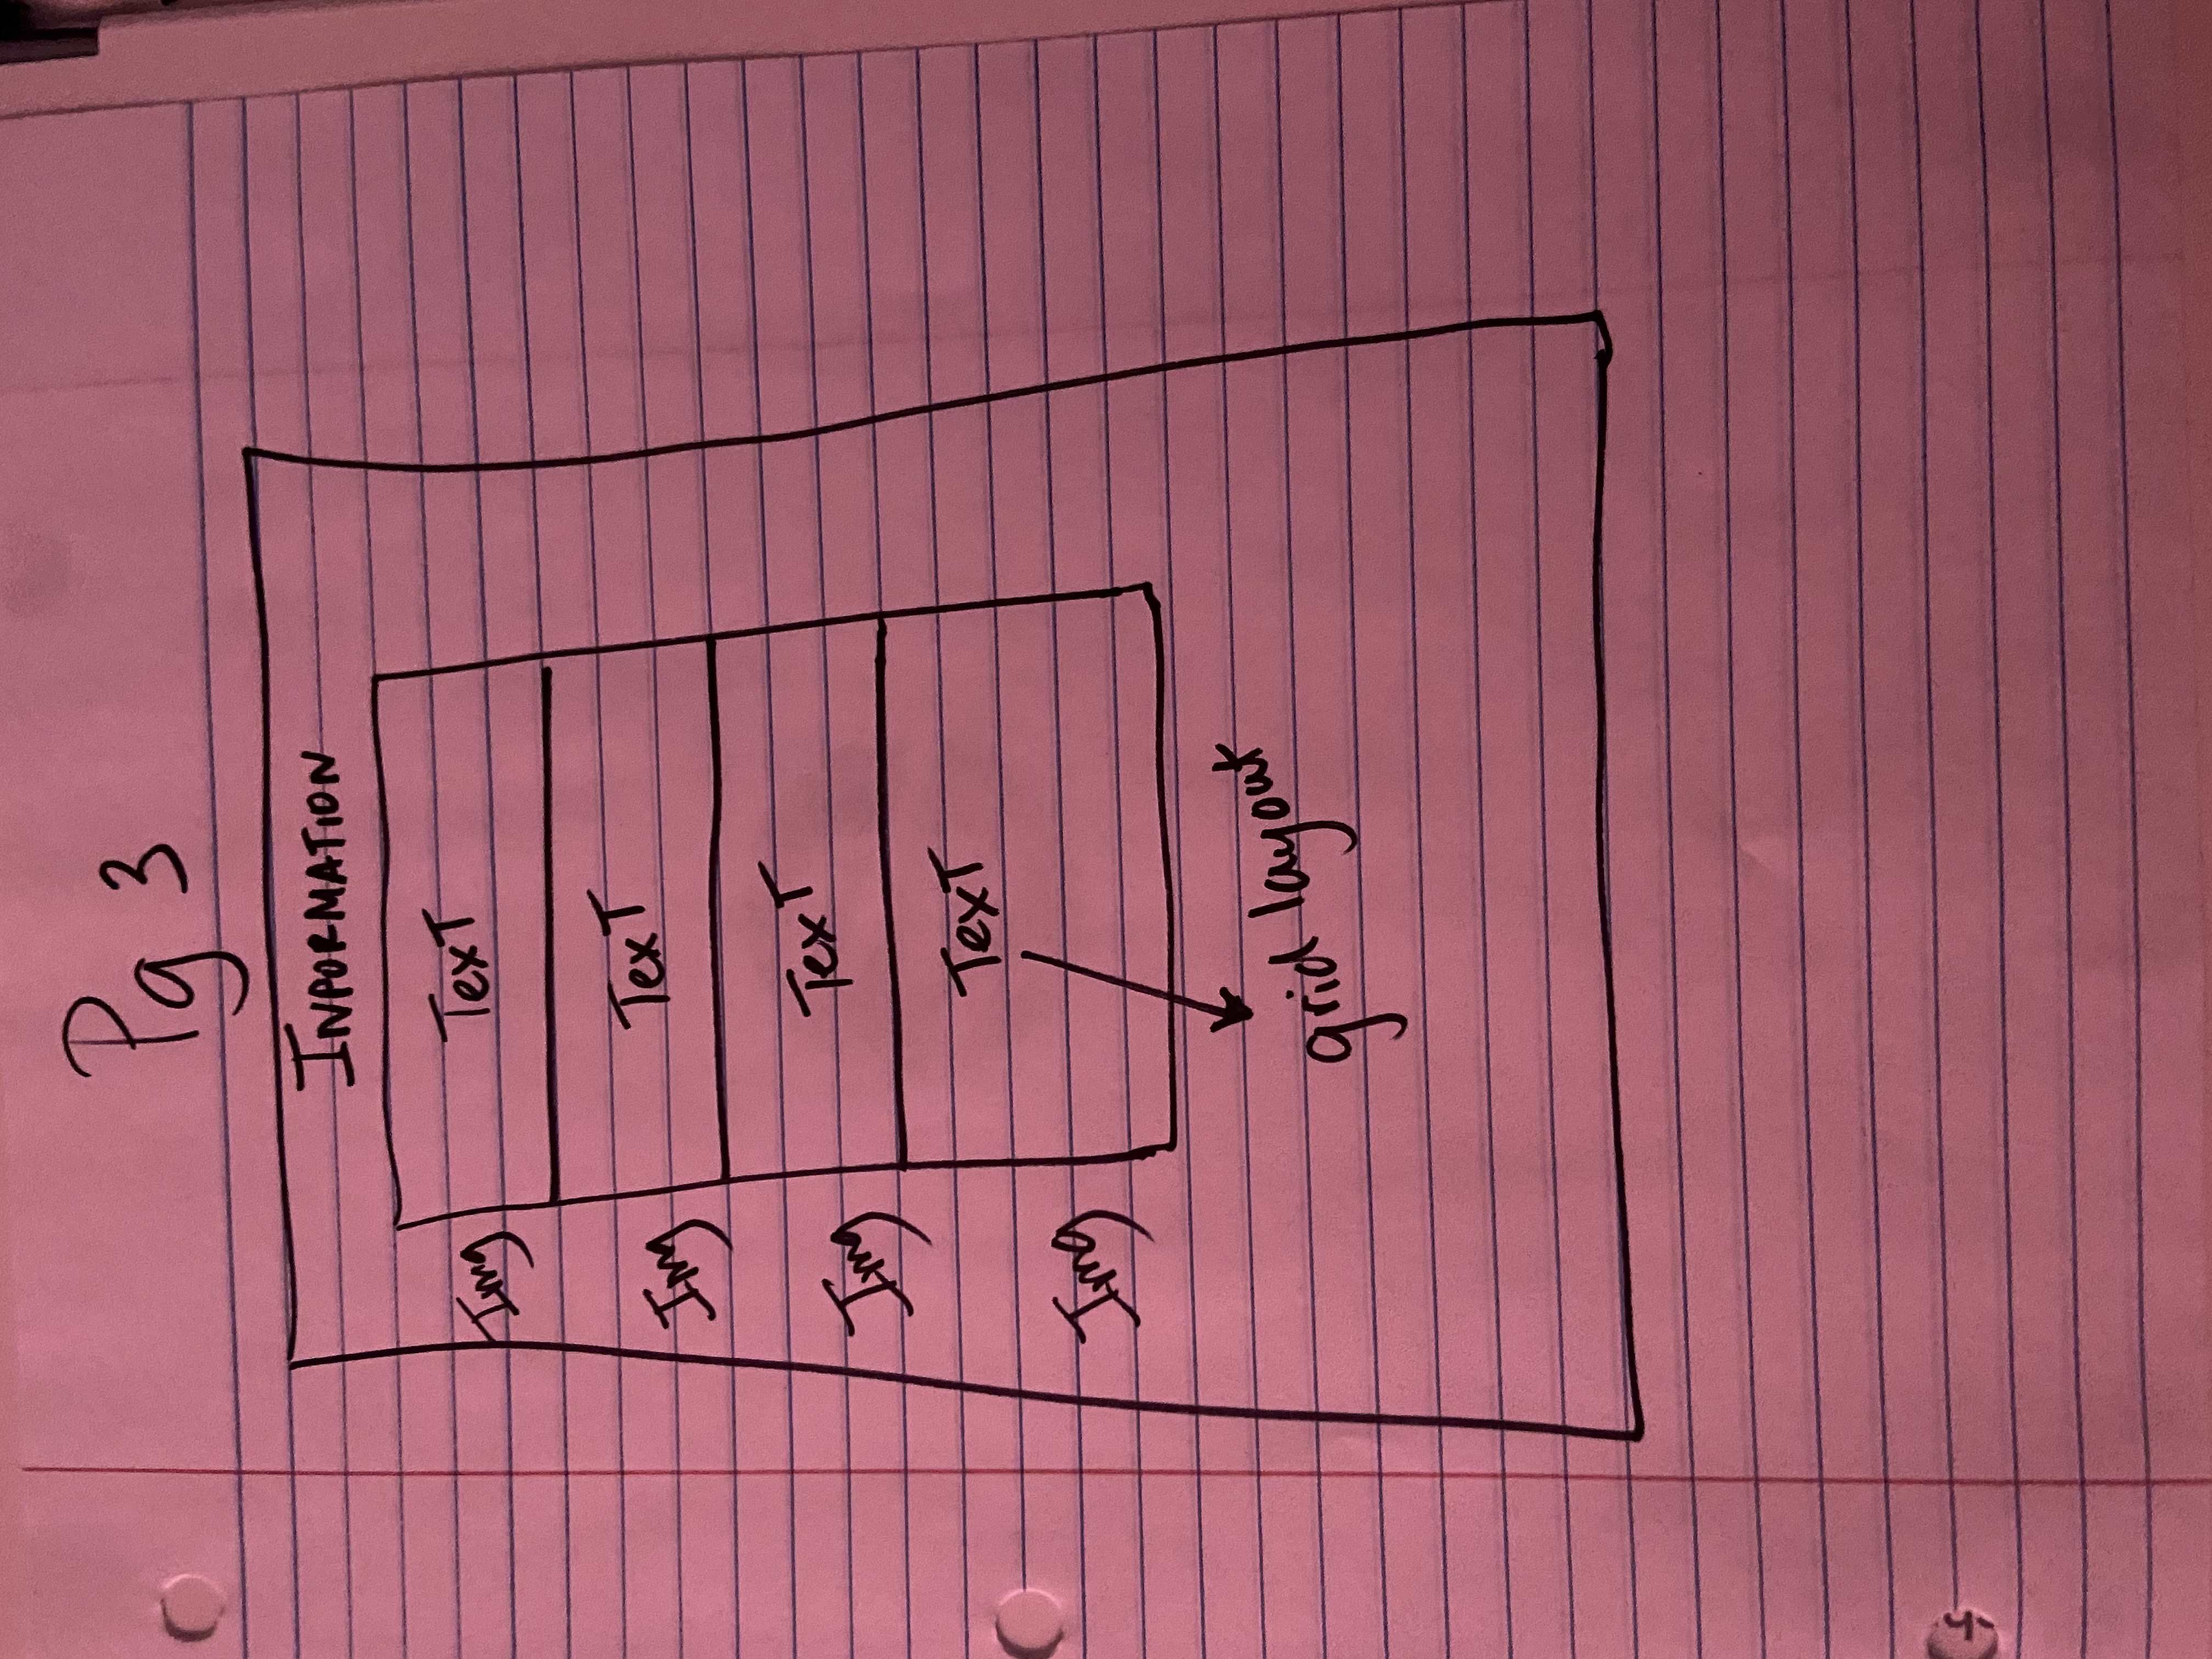 Pg 3
INFORMATION
Img TexT
Img TexT
Img TexT
TexT
Img
grid layout